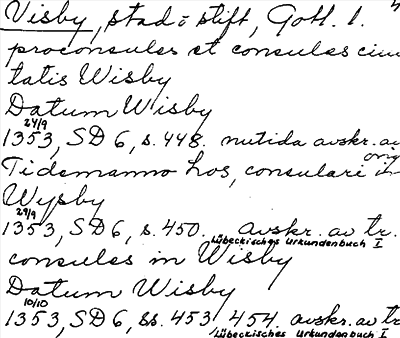 Visby, stad o stift, Gotl. l.
proconsules et consules ciui
tatis Wisby
Datum Wisby
24/9
1353, SD 6, s. 448. nutida avskr. av
orig
Tidemanno Los, consulari in
Wysby
29/9
1353, SD 6, s. 450. avskr. av tr.
Lübeckisches Urkundenbuch I
consules in Wisby
Datum Wisby
10/10
1353, SD 6, ss. 453, 454. avskr. av tr
Lübeckisches Urkundenbuch I